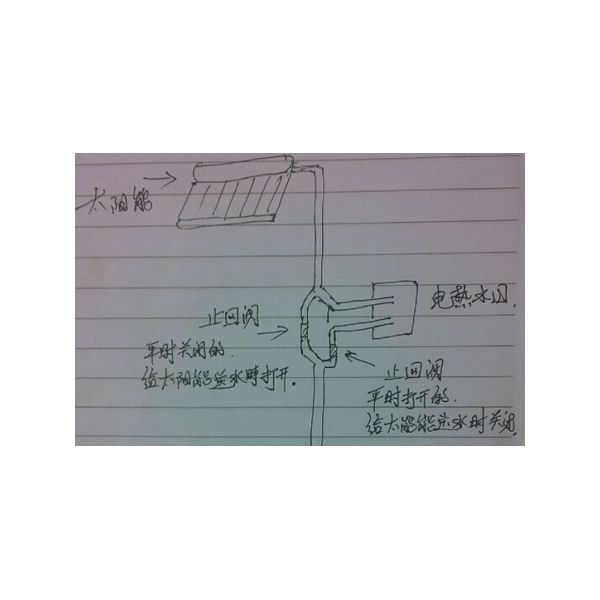 太阳能
电热水口.
止回阀
平时关闭的.
给太阳能送水时打开.
止回阀
平时打开的.
给太能能送水时关闭.